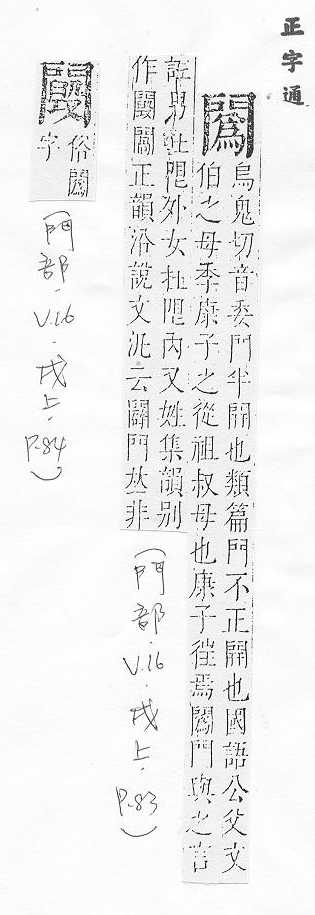 正字通
闖
烏鬼切音委門半開也類篇門不正開也國語公父文
伯之母季康子之從祖叔母也康子徃焉䦱門與之言
註男在閫外女在閫內又姓集韻别
作䦱正韻沿說文汎云闢門𠀤非
俗䦱
字
(門部.V.16.戌上.P.83)
(門部.V.16.戌上.P.84)